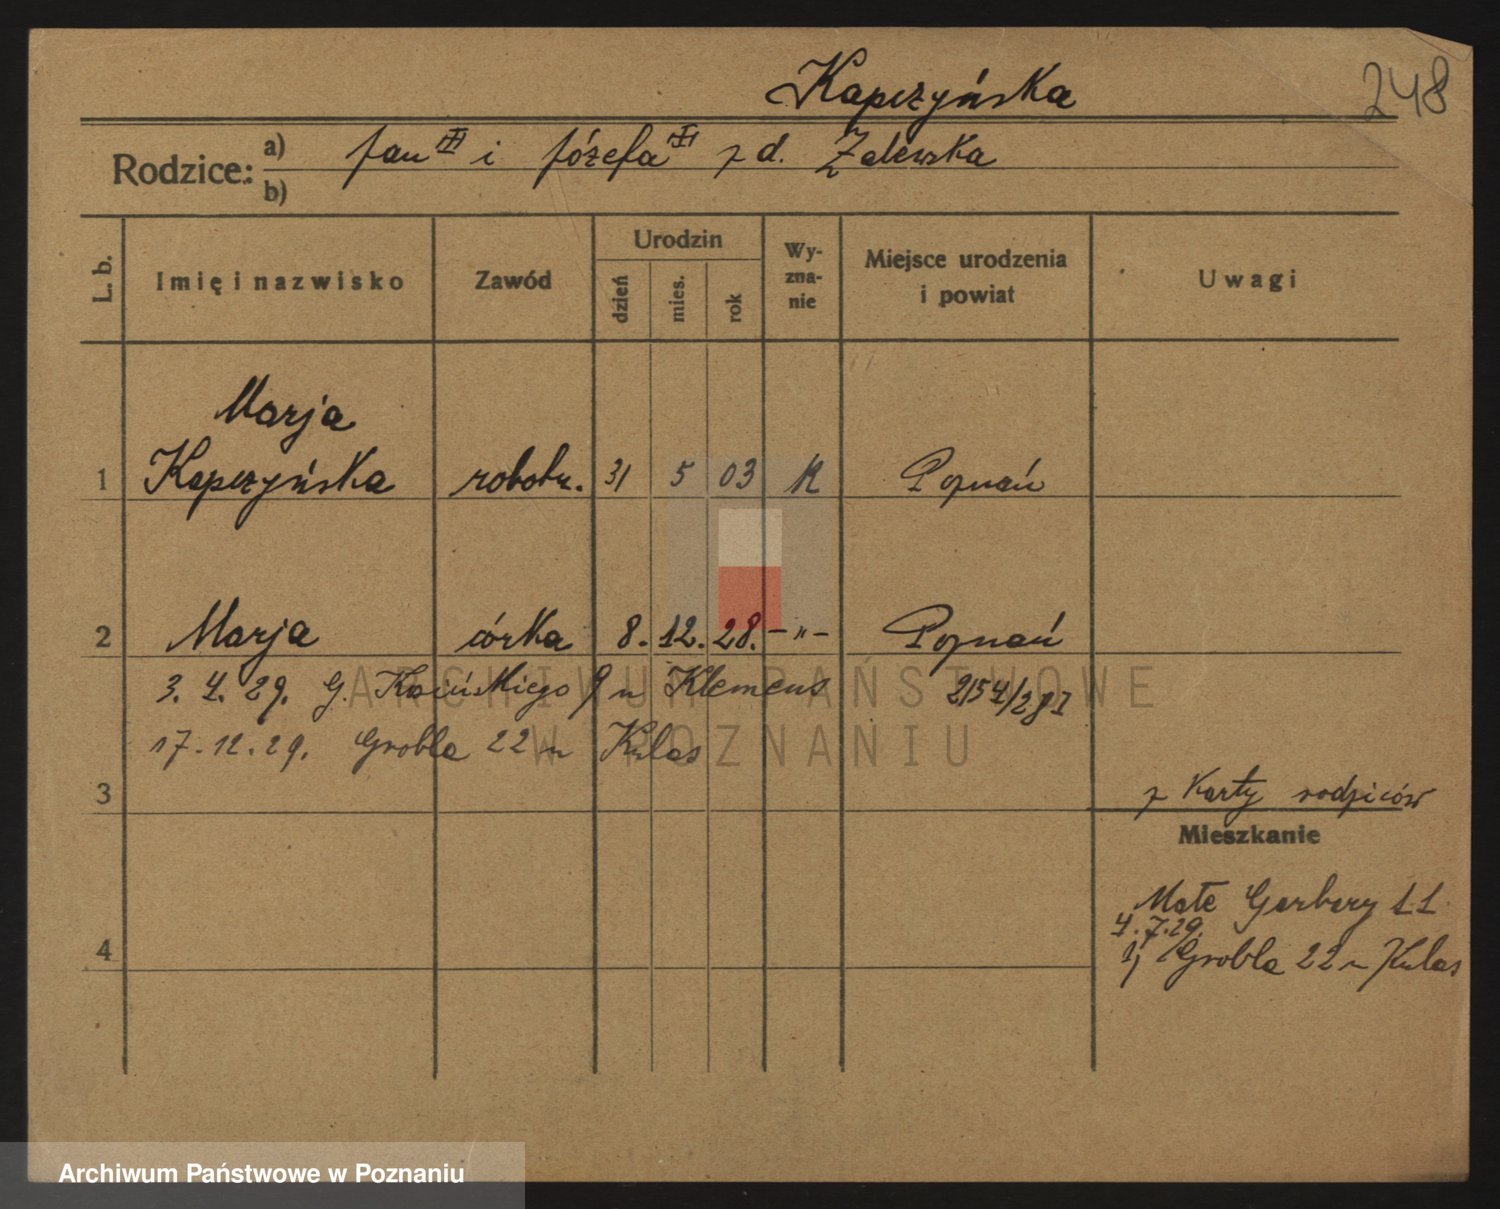 Kapczyńska
248
Rodzice:
a) Jan III i Józefa I z d. Zalewska
b)
L. b.
Imię i nazwisko
Zawód
Urodzin
dzień
mies.
rok
Wy-
zna-
nie
Miejsce urodzenia
i powiat
Uwagi
Marja
1 Kapczyńska robotn. 31 5 03 K Poznań
2 Marja córka 8. 12. 28. -"- Poznań
3. 4. 29. G. 9 u Klemens 2154/28 I
17.12.29. Grobla 22 u Kulas
3
z Karty rodziców
Mieszkanie
Małe Garbary 11
4.7.29.
4
Grobla 22 u Kulas
ARCHIWUM PAŃSTWOWE
W POZNANIU
Archiwum Państwowe w Poznaniu